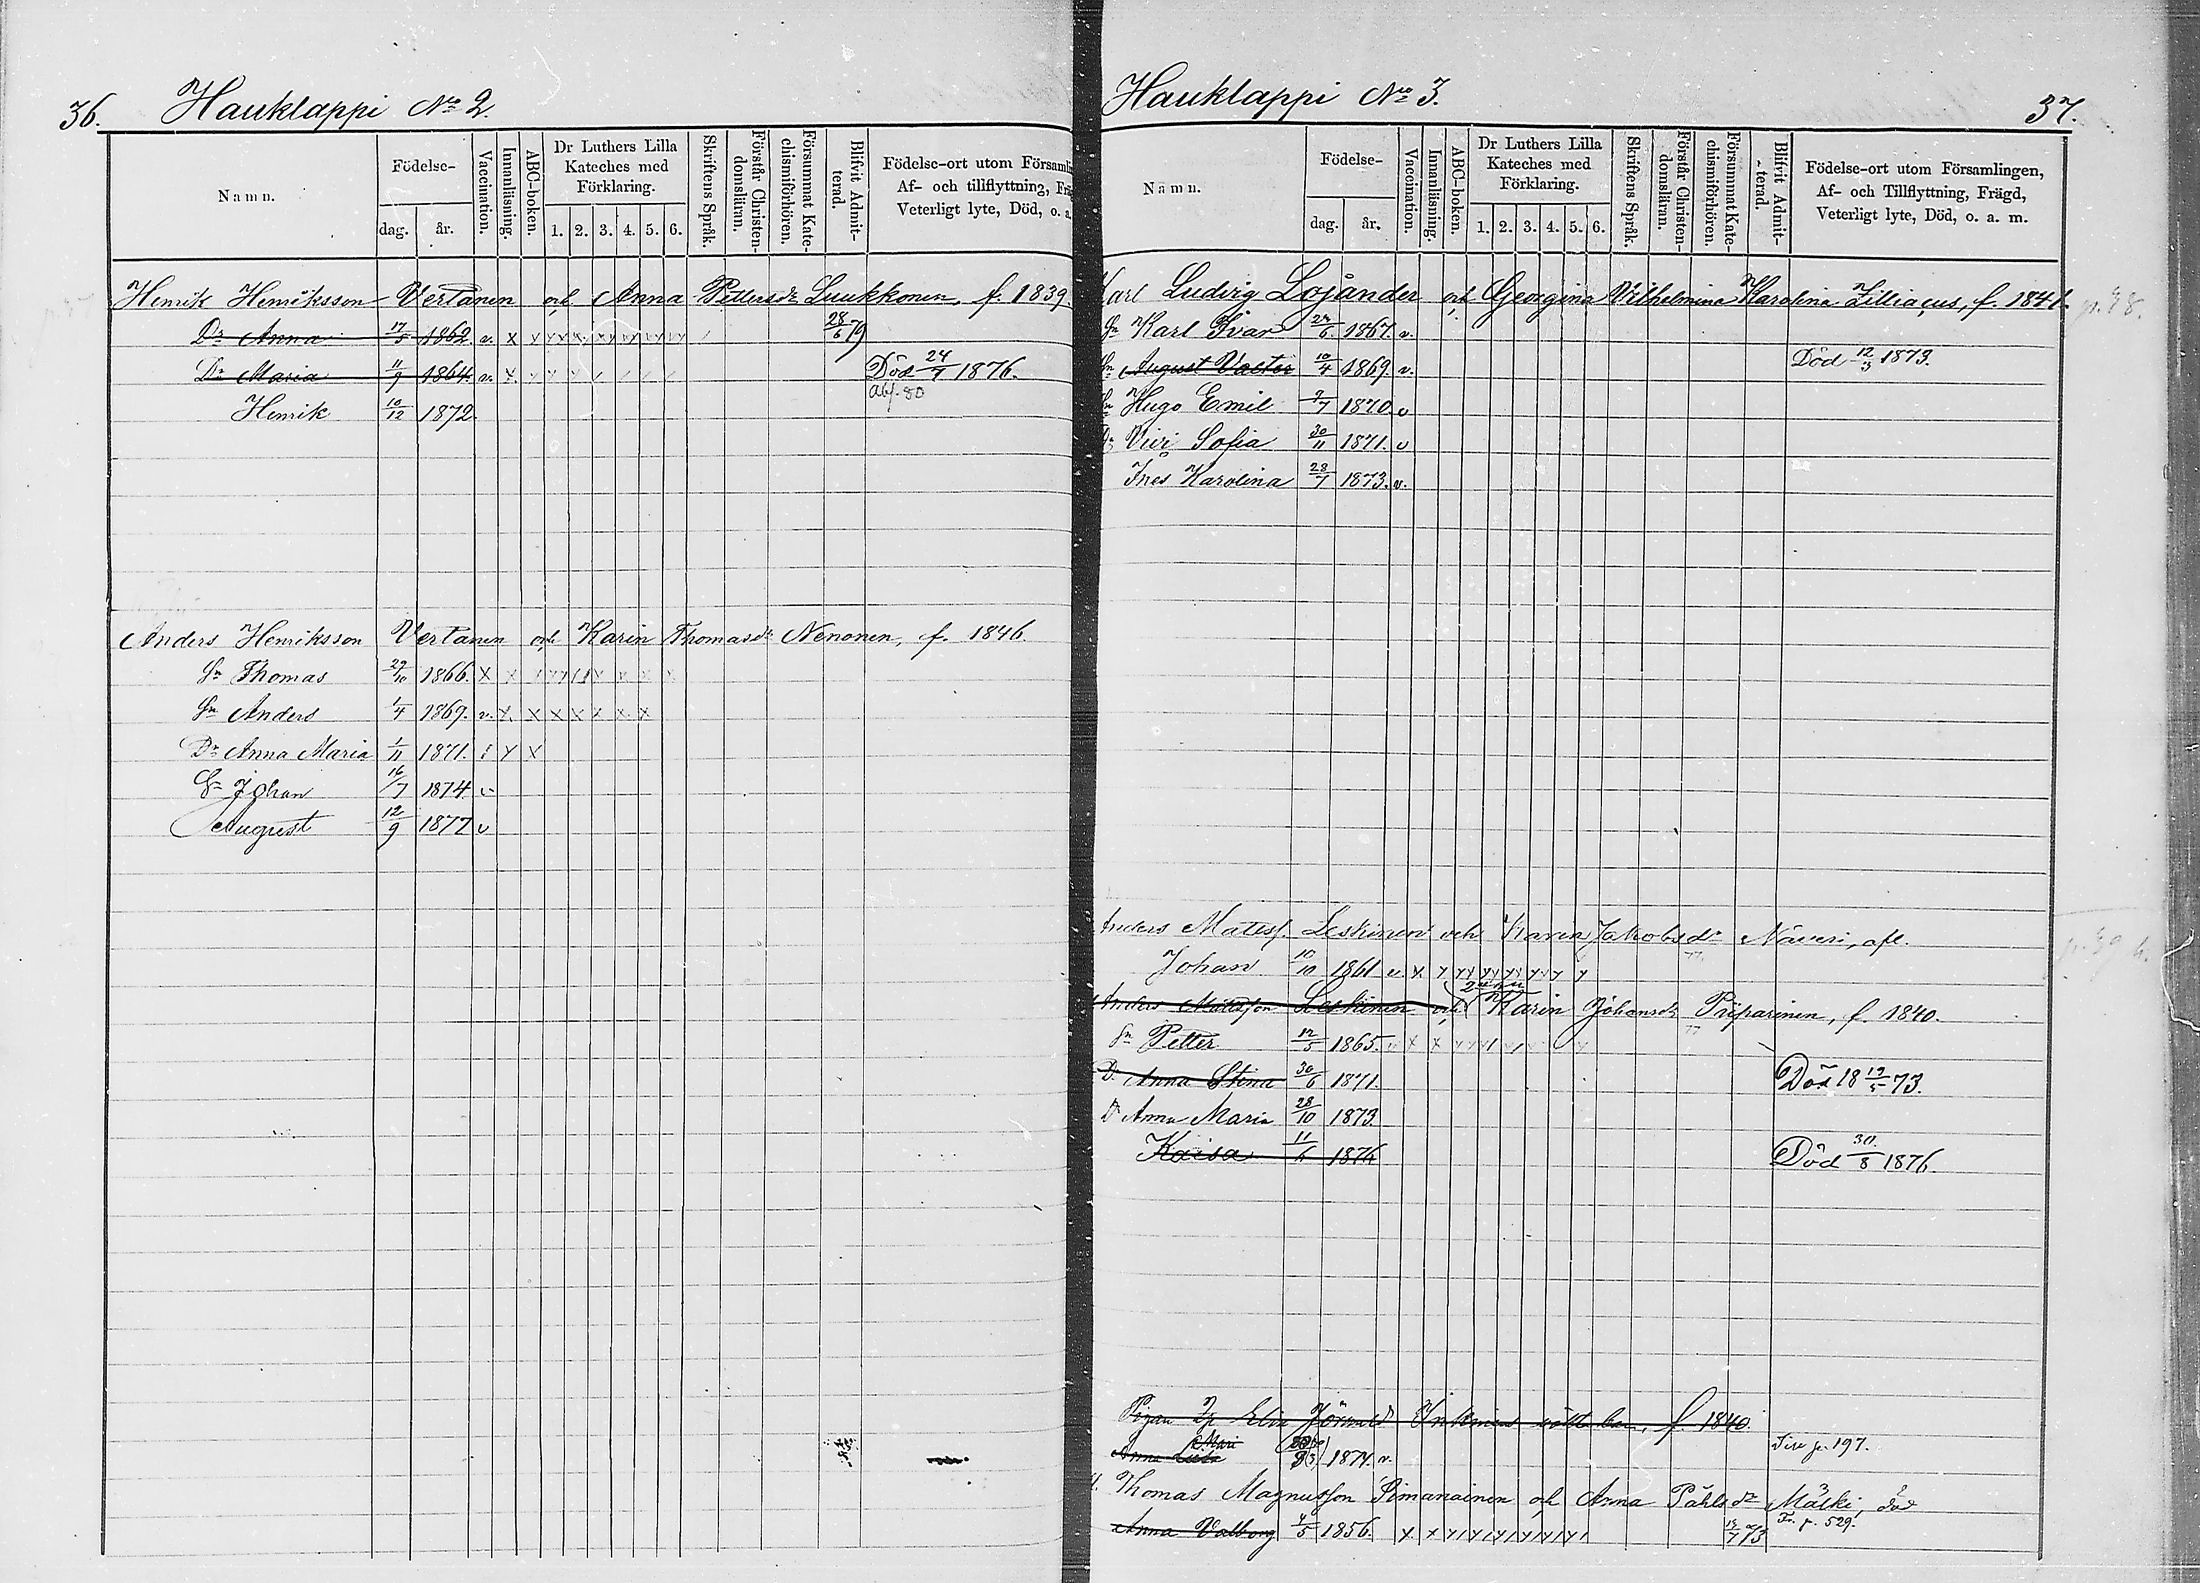 36. Hauklappi No 2.
Namn.
Födelse-
dag.
år.
Vaccination.
Innanläsning.
ABC-boken.
Dr Luthers Lilla
Kateches med
Förklaring.
1. 2. 3. 4. 5. 6.
Skriftens Språk.
Förstår Christen-
domsläran.
Försummat Kate-
chismiförhören.
Blifvit Admit-
terad.
Födelse-ort utom Församli
Af- och tillflyttning, Fräg
Veterligt lyte, Död, o. a.
Henrik Henriksson Vertanen och Anna Pettersdr Luukkonen, f. 1839.
Dr Anna 17/5 1862. v. x 28/6 79
Dr Maria 11/9 1864. v. x Död 24/7 1876.
abf. 80
Henrik 10/12 1872.
Anders Henriksson Vertanen och Karin Thomasdr Nenonen, f. 1846.
Sn Thomas 29/10 1866. x x
Sn Anders 1/4 1869. v. x x x x x x x
Dr Anna Maria 1/11 1871. x x
Sn Johan 16/7 1874 v
August 12/9 1877 v
Hauklappi No 3. 37.
Namn.
Födelse-
dag.
år.
Vaccination.
Innanläsning.
ABC-boken.
Dr Luthers Lilla
Kateches med
Förklaring.
1. 2. 3. 4. 5. 6.
Skriftens Språk.
Förstår Christen-
domsläran.
Försummat Kate-
chismiförhören.
Blifvit Admit-
terad.
Födelse-ort utom Församlingen,
Af- och Tillflyttning, Frägd,
Veterligt lyte, Död, o. a. m.
Karl Ludvig Lojander och Georgina Vilhelmina Karolina Lilliacus, f. 1841.
Sn Karl Ivar 1867. v.
Sn August Valter 10/4 1869. v. Död 12/3 1873.
Sn Hugo Emil 9/7 1870. v
Dr Viri Sofia 30/11 1871. v
Ines Karolina 28/7 1873. v.
Anders Matss. Leskinen och Karin Jakobsdr
Johan 10/10 1861 v. x
Anders Mattsson Leskinen och Karin Johansdr Piiparinen, f. 1840.
Sn Petter 12/5 1865. v x x
Dr Anna Stina 30/6 1871. Död 18 19/5 73.
Dr Anna Maria 28/10 1873
Kaisa 1876 Död 30/8 1876.
Pigan f. 1840.
Anna 1874. v. p. 197.
Thomas Magnusson Pimanainen och Anna Påhlsdr Mälki, död
Anna Valborg 4/5 1856. x x Fr. p. 529.